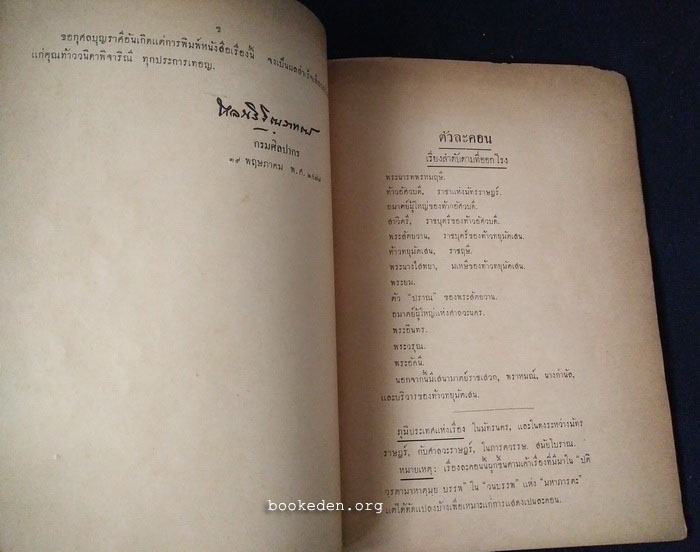 ข
ขอกุศลบุญราศีอันเกิดแต่การพิมพ์หนังสือเรื่องนี้ จงเป็นผลสำเร็จ
แก่คุณท้าววนิดาพิจาริณี ทุกประการเทอญ.
กรมศิลปากร
๑๙ พฤษภาคม พ.ศ.
ตัวละคอน
เรียงลำดับตามที่ออกโรง
พระนารทพรหมฤษี.
ท้าวอัศวบดี, ราชาแห่งมัทรราษฎร์.
อมาตย์ผู้ใหญ่ของท้าวอัศวบดี.
สาวิตรี, ราชบุตรีของท้าวอัศวบดี.
พระสัตยวาน, ราชบุตร์ของท้าวทยุมัตเสน.
ท้าวทยุมัตเสน, ราชฤษี.
พระนางไศพยา, มเหษีของท้าวทยุมัตเสน.
พระยม.
ตัว "ปราณ" ของพระสัตยวาน.
อมาตย์ผู้ใหญ่แห่งศาลวะนคร.
พระอินทร.
พระวรุณ.
พระอัคนี.
นอกจากนี้มีเสนามาตย์ราชเสวก, พราหมณ์, นางกำนัล,
และบริวารของท้าวทยุมัตเสน.
ภูมิประเทศแห่งเรื่อง ในมัทรนคร, และในดงระหว่างมัทร
ราษฎร์, กับศาลวะราษฎร์, ในภารตวรรษ. สมัยโบราณ.
หมายเหตุ: เรื่องละคอนนี้ผูกขึ้นตามเค้าเรื่องที่มีมาใน "ปติ
วรตามาหาตมฺย บรรพ" ใน "วนบรรพ" แห่ง "มหาภารตะ"
แต่ได้ดัดแปลงบ้างเพื่อเหมาะแก่การแสดงเปนละคอน.
bookeden.org